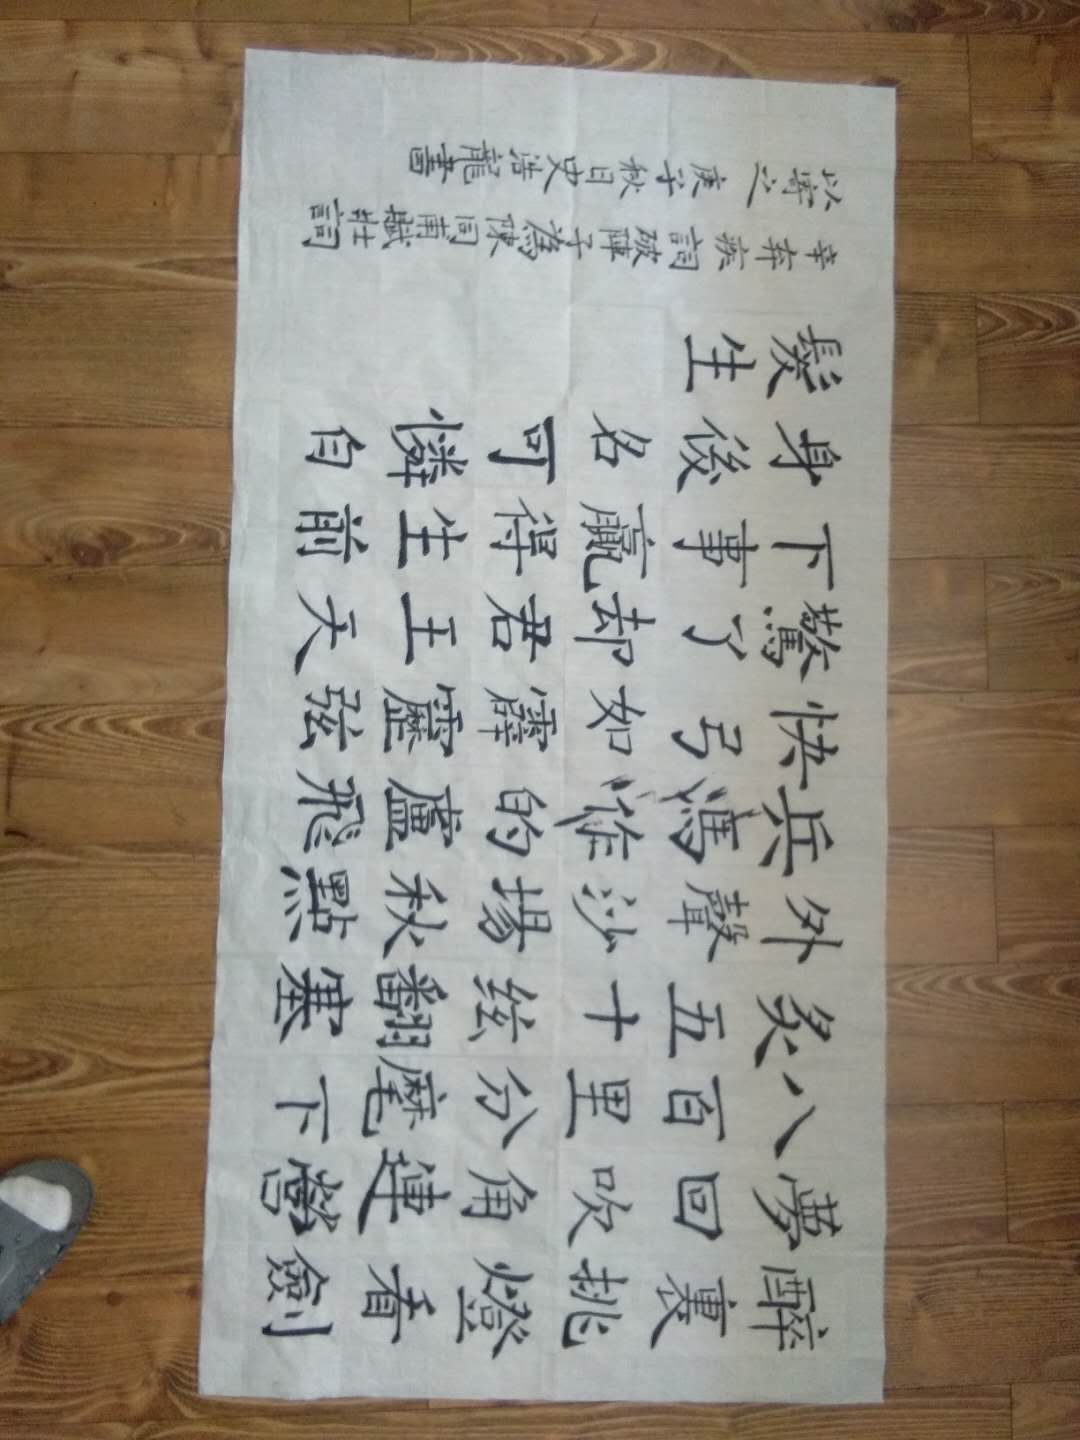 醉裏挑燈看劍
夢回吹角連營
八百里分麾下
炙五十絃翻塞
外聲沙場秋點
兵馬作的盧飛
快弓如霹靂弦
驚了却君王天
下事贏得生前
身後名可憐白
髮生
辛弃疾詞破陣子為陳同甫賦壯詞
以寄之 庚子秋日史浩龍書